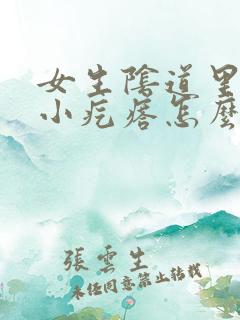 女生陰道里
小疙瘩怎麼
張雲生
未经同意禁止转载